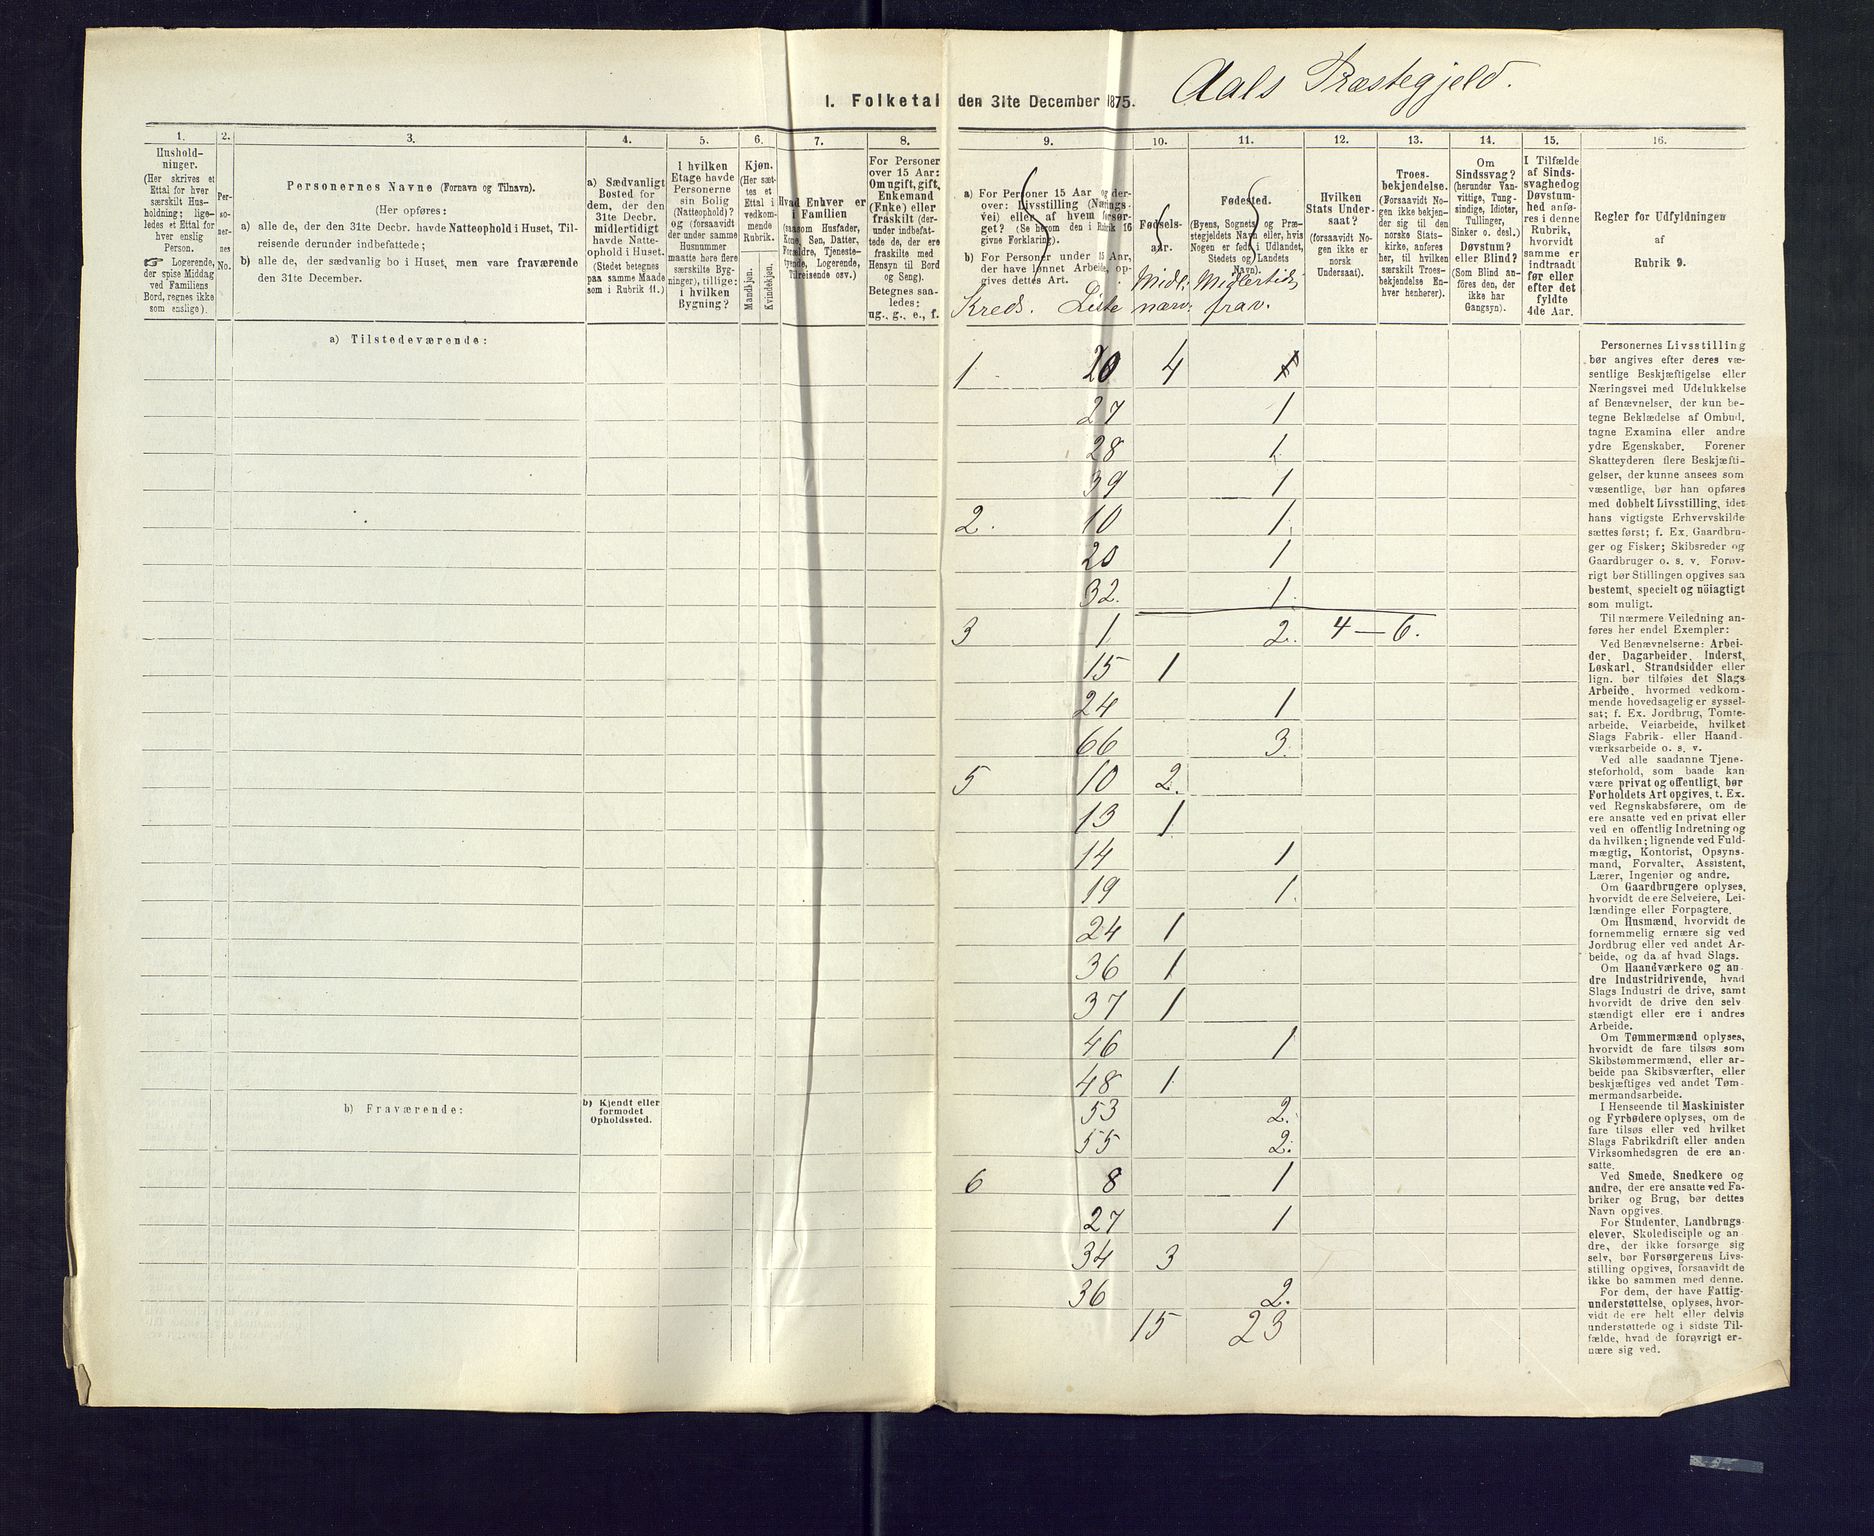 Aals Præstegjeld.
1. Folketal den 31te December 1875.
1.
Hushold-
ninger.
(Her skrives et
Ettal for hver
særskilt Hus-
holdning; lige-
ledes et Ettal for
hver enslig
Person.
☞ Logerende,
der spise Middag
ved Familiens
Bord, regnes ikke
som enslige).
2.
Per-
so-
ner-
nes
No.
3.
Personernes Navne (Fornavn og Tilnavn).
(Her opføres:
a) alle de, der den 31te Decbr. havde Natteophold i Huset, Til-
reisende derunder indbefattede;
b) alle de, der sædvanlig bo i Huset, men vare fraværende
den 31te December.
4.
a) Sædvanligt
Bosted for
dem, der den
31te Decbr.
midlertidigt
havde Natte-
ophold i Huset.
(Stedet betegnes
paa samme Maade
som i Rubrik 11.)
5.
I hvilken
Etage havde
Personerne
sin Bolig
(Natteophold)?
og (forsaavidt
der under samme
Husnummer
maatte høre flere
særskilte Byg-
ninger), tillige:
i hvilken
Bygning?
6.
Kjøn.
(Her sæt-
tes et
Ettal i
vedkom-
mende
Rubrik.
Mandkjøn.
Kvindekjøn.
7.
Hvad Enhver er
i Familien
(saasom Husfader,
Kone, Søn, Datter,
Forældre, Tjeneste-
tyende, Logerende,
Tilreisende osv.)
8.
For Personer
over 15 Aar:
Om ugift, gift,
Enkemand
(Enke) eller
fraskilt (der-
under indbefat-
tede de, der ere
fraskilte med
Hensyn til Bord
og Seng).
Betegnes saa-
ledes:
ug., g., e., f.
9.
a) For Personer 15 Aar og der-
over: Livsstilling (Nærings-
vei) eller af hvem forsør-
get? (Se herom den i Rubrik 16
givne Forklaring).
b) For Personer under 15 Aar,
der have lønnet Arbeide, op-
gives dettes Art.
Kreds. Liste
10.
Fødsels-
aar.
Midl:
nærv:
11.
Fødested.
(Byens, Sognets og Præ-
stegjeldets Navn eller, hvis
Nogen er født i Udlandet,
Stedets og Landets
Navn).
Midlertid:
frav.
12.
Hvilken
Stats Under-
saat?
(forsaavidt No-
gen ikke er
norsk
Undersaat).
13.
Troes-
bekjendelse.
(Forsaavidt No-
gen ikke bekjen-
der sig til den
norske Stats-
kirke, anføres
her, til hvilken
særskilt Troes-
bekjendelse En-
hver henhører).
14.
Om
Sindssvag?
(herunder Van-
vittige, Tung-
sindige, Idioter,
Tullinger,
Sinker o. desl.)
Døvstum?
eller Blind?
(Som Blind an-
føres den, der
ikke har
Gangsyn).
15.
I Tilfælde
af Sinds-
svaghed og
Døvstum-
hed anfø-
res i denne
Rubrik,
hvorvidt
samme er
indtraadt
før eller
efter det
fyldte
4de Aar.
16.
Regler for Udfyldningen
af
Rubrik 9.
a) Tilstedeværende:
1 20 4
27 1
28 1
39 1
2. 10 1
20 1
32. 1.
3 1 2. 4 — 6.
15 1
24 1
66 3.
5 10 2.
13 1
14 1
19 1.
24 1
36 1
37 1
46 1
48 1
b) Fraværende:
b) Kjendt eller
formodet
Opholdssted.
53 2.
55 2.
6 8 1
27 1
34 3
36 2.
15 23
Personernes Livsstilling
bør angives efter deres væ-
sentlige Beskjæftigelse eller
Næringsvei med Udelukkelse
af Benævnelser, der kun be-
tegne Beklædelse af Ombud,
tagne Examina eller andre
ydre Egenskaber. Forener
Skatteyderen flere Beskjæfti-
gelser, der kunne ansees som
væsentlige, bør han opføres
med dobbelt Livsstilling, idet
hans vigtigste Erhvervskilde
sættes først; f. Ex. Gaardbru-
ger og Fisker; Skibsreder og
Gaardbruger o. s. v. Forøv-
rigt bør Stillingen opgives saa
bestemt, specielt og nöiagtigt
som muligt.
Til nærmere Veiledning an-
føres her endel Exempler:
Ved Benævnelserne: Arbei-
der, Dagarbeider, Inderst,
Løskarl, Strandsidder eller
lign. bør tilføies det Slags
Arbeide, hvormed vedkom-
mende hovedsagelig er syssel-
sat; f. Ex. Jordbrug, Tomte-
arbeide, Veiarbeide, hvilket
Slags Fabrik- eller Haand-
værksarbeide o. s. v.
Ved alle saadanne Tjene-
steforhold, som baade kan
være privat og offentligt, bør
Forholdets Art opgives, t. Ex.
ved Regnskabsførere, om de
ere ansatte ved en privat eller
ved en offentlig Indretning og
da hvilken; lignende ved Fuld-
mægtig, Kontorist, Opsyns-
mand, Forvalter, Assistent,
Lærer, Ingeniør og andre.
Om Gaardbrugere oplyses,
hvorvidt de ere Selveiere, Lei-
lændinge eller Forpagtere.
Om Husmænd, hvorvidt de
fornemmelig ernære sig ved
Jordbrug eller ved andet Ar-
beide, og da af hvad Slags.
Om Haandværkere og an-
dre Industridrivende, hvad
Slags Industri de drive, samt
hvorvidt de drive den selv
stændigt eller ere i andres
Arbeide.
Om Tømmermænd oplyses,
hvorvidt de fare tilsøs som
Skibstømmermænd, eller ar-
beide paa Skibsværfter, eller
beskjæftiges ved andet Tøm-
mermandsarbeide.
I Henseende til Maskinister
og Fyrbødere oplyses, om de
fare tilsøs eller ved hvilket
Slags Fabrikdrift eller anden
Virksomhedsgren de ere an-
satte.
Ved Smede, Snedkere og
andre, der ere ansatte ved Fa-
briker og Brug, bør dettes
Navn opgives.
For Studenter, Landbrugs-
elever, Skoledisciple og an-
dre, der ikke forsørge sig
selv, bør Forsørgerens Livs-
stilling opgives, forsaavidt de
ikke bo sammen med denne.
For dem, der have Fattig-
understøttelse, oplyses, hvor-
vidt de ere helt eller delvis
understøttede og i sidste Til-
fælde, hvad de forøvrigt er-
nære sig ved.